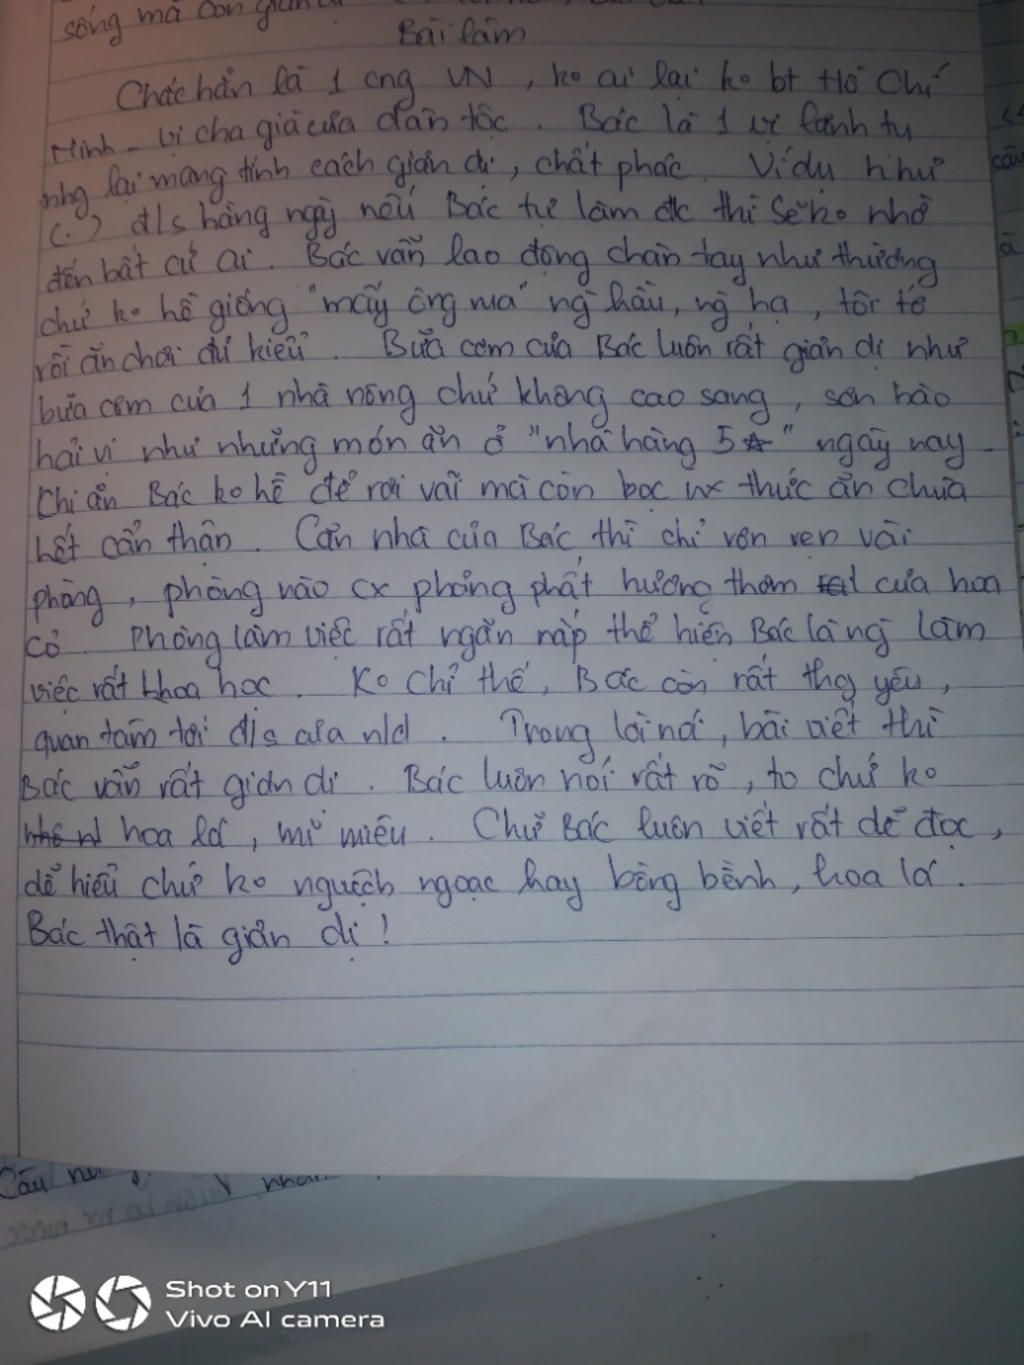 sống mà con giản
Bài làm
Chắc hẳn là 1 cng VN, ko ai lại ko bt Hồ Chí
Minh - vị cha già của dân tộc. Bác là 1 vị lãnh tụ
nhg lại mang tính cách giản dị, chất phác. Ví dụ như
(.) đ/s hằng ngày nếu Bác tự làm đk thì sẽ ko nhờ
đến bất cứ ai. Bác vẫn lao động chân tay như thường
chứ ko hề giống "mấy ông vua" ng hầu, ng hạ, tôi tớ
rồi ăn chơi đủ kiểu. Bữa cơm của Bác luôn rất giản dị như
bữa cơm của 1 nhà nông chứ không cao sang, sơn hào
hải vị như những món ăn ở "nhà hàng 5☆" ngày nay.
Khi ăn Bác ko hề để rơi vãi mà còn bọc thức ăn chưa
hết cẩn thận. Căn nhà của Bác thì chỉ vỏn vẹn vài
phòng, phòng nào cx phảng phất hương thơm của hoa
cỏ. Phòng làm việc rất ngăn nắp thể hiện Bác là ng làm
việc rất khoa học. Ko chỉ thế, Bác còn rất thg yêu,
quan tâm tới đ/s của nld. Trong lời nói, bài viết thì
Bác vẫn rất giản dị. Bác luôn nói rất rõ, to chứ ko
hoa lá, mĩ miều. Chữ Bác luôn viết rất dễ đọc,
dễ hiểu chứ ko nguệch ngoạc hay bồng bềnh, hoa lá.
Bác thật là giản dị!
Câu
Shot on Y11
Vivo AI camera